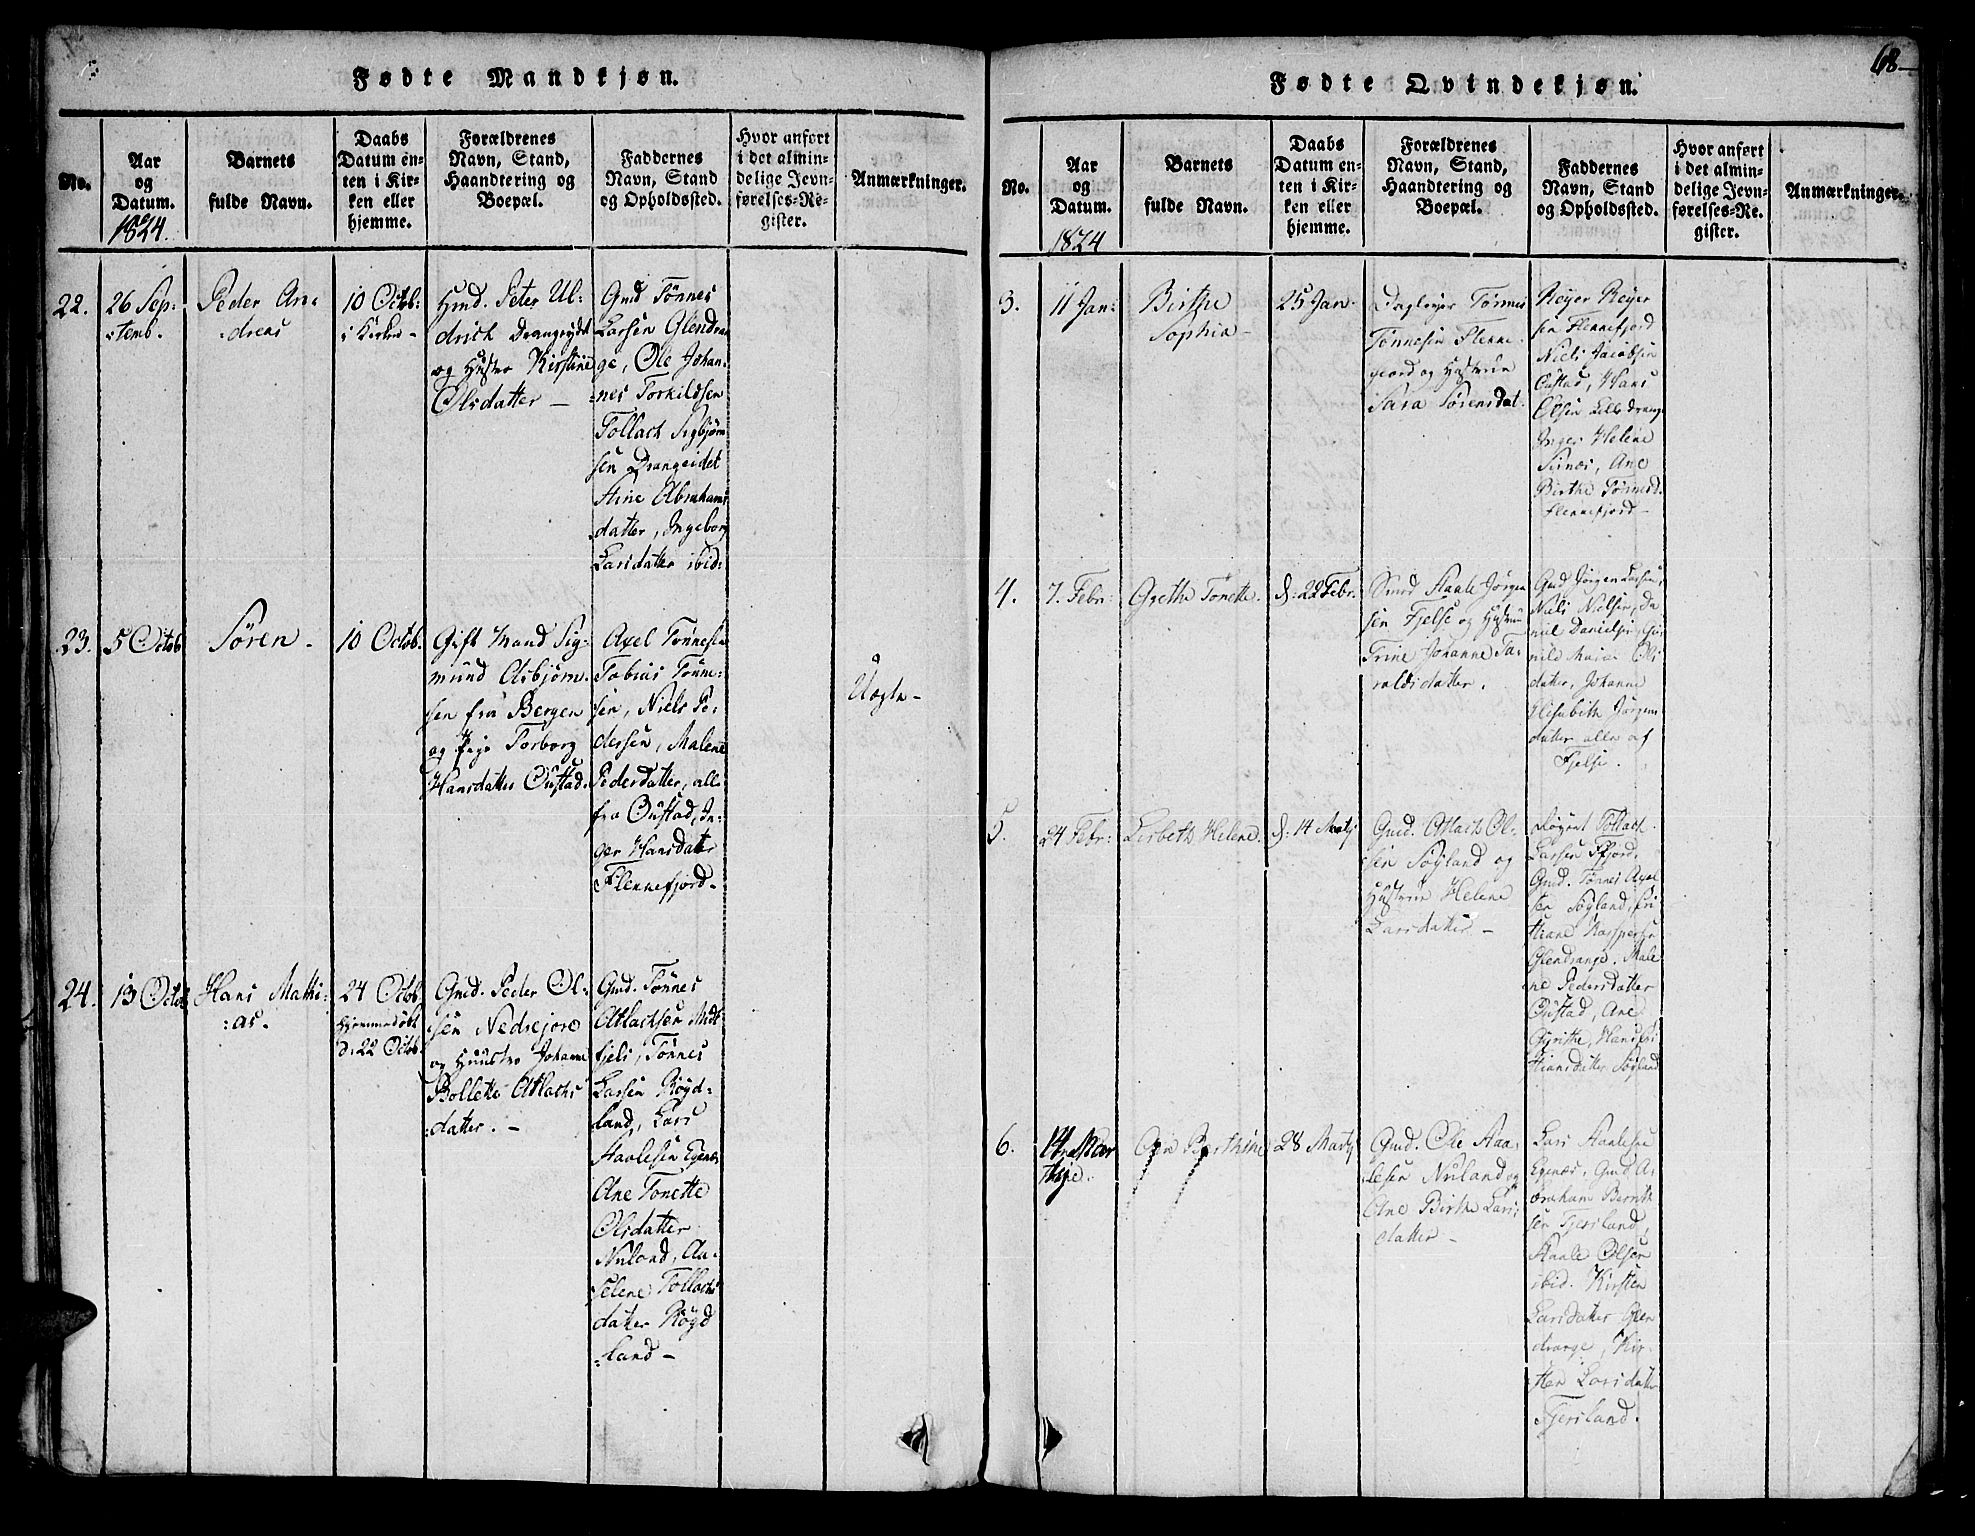 Fødte Mandkjøn.
No.
Aar
og
Datum.
1824.
Barnets
fulde Navn.
Daabs
Datum en-
ten i Kir-
ken eller
hjemme.
Forældrenes
Navn, Stand,
Haandtering og
Boepæl.
Faddernes
Navn, Stand
og Opholdssted.
Hvor anført
i det almin-
delige Jevn-
førelses-Re-
gister.
Anmærkninger.
22.
26 Sep:
temb.
Peder An:
dreas
10 Octob:
i Kirken -
Gmd. Peter Ul-
drich Drangeydet
og Hustro Kirstine
Olsdatter -
Gmd Tönnes
Larsen Glendran
ge, Ole Johan-
nes Torkildsen
Tollach Sigbjörn
sen Drangeidet
Stine Abrahams
datter, Ingeborg
Larsdatter ibid:
23.
5 Octob
Sören -
10 Octob.
Gift Mand Sig-
mund Asbjörn-
sen fra Bergen
og Pige Torborg
Hansdatter Oustad.
Axel Tönnesen
Tobias Tönne-
sen, Niels Pe-
dersen, Malene
Pedersdatter, alle
fra Oustad, In-
ger Hansdater
Flennefjord -
Uægte -
24.
13 Octob
Hans Mathi:
:as.
24 Octob.
Hjemmedöbt
d: 22 Octob.
Gmd. Peder Ol-
sen Nedrejore
og Huustro Johanne
Bollette Atlachs
datter. -
Gmd. Tönnes
Atlachsen Midt
fjels, Tönnes
Larsen Röyd-
land, Lars
Staalesen Egenes
Ane Tonette
Olsdatter
Nuland, An-
selene Tollachs
datter Röyd
:land -
68 -
Fødte Qvindekjøn.
No.
Aar
og
Datum.
1824
Barnets
fulde Navn.
Daabs
Datum en-
ten i Kir-
ken eller
hjemme.
Forældrenes
Navn, Stand,
Haandtering og
Boepæl.
Faddernes
Navn, Stand
og Opholdssted.
Hvor anført
i det almin-
delige Jevn-
førelses-Re-
gister.
Anmærkninger.
3.
11 Jan:
Birthe
Sophia -
25 Jan -
Daglejer Tönnes
Tönnesen Flenne-
fjord og Hustrue
Sara Sörensdat.
Reyer Reyer
sen Flennefjord
Niels Jacobsen
Oustad, Hans
Olsen Lille Drange
Inger Helene
Sirnæs, Ane
Birthe Tönnesd.
Flennefjord -
4.
7. Febr:
Grethe Tönette.
d: 22 Febr.
Gmd Staale Jörgen
sen Fjelse og Hustrue
Trine Johanne Ta-
raldsdatter.
Gmd Jörgen Larsen,
Niels Nielsen, Da
niel Danielsen, Gu
nild Maria Ols
datter, Johanne
Elisabeth Jörgens
datter alle af
Fjelse.
5.
24 Febr:
Lisbeth Helene.
d: 14 Martj
Gmd. Atlach Ol-
sen Söyland og
Hustrue Helene
Larsdatter -
Tollach
Larsen Fjord,
Gmd. Tönnes Axel
sen Söyland,
Kaspersen
Glendrange, Male
ne Pedersdatter
Oustad, Ane
Gyrithe,
tiansdatter Söyland
6.
14
Ane Berthine
28 Martj
Gmd. Ole Aan-
lesen Nuland og
Ane Birthe Lars
datter -
Lars Staalesen
Egenæs, Gmd A-
braham Bernth
sen Fjersland,
Staale Olsen
ibid. Kirsten
Larsdatter Glen
drange, Kir-
sten Larsdatter
Fjersland.